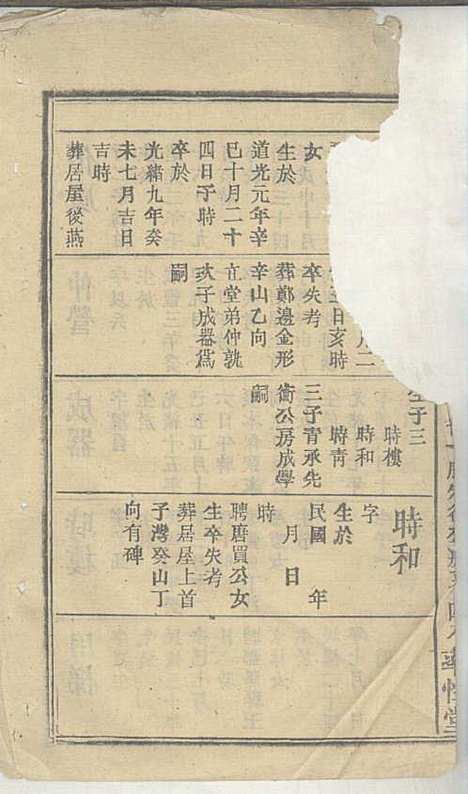 女
生於
道光元年辛
巳十月二十
四日子時
卒於
光緒九年癸
未七月吉日
吉時
葬居屋後燕
日亥時
卒失考
葬鄭邊金形
辛山乙向
立堂弟仲孰
次子成器爲
嗣
生子三
時樓
時和
時青
三子青承先
衛公房成學
嗣
時和
字
生於
民國 年
月 日
時
聘唐買公女
生卒失考
葬居屋上首
子灣癸山丁
向有碑